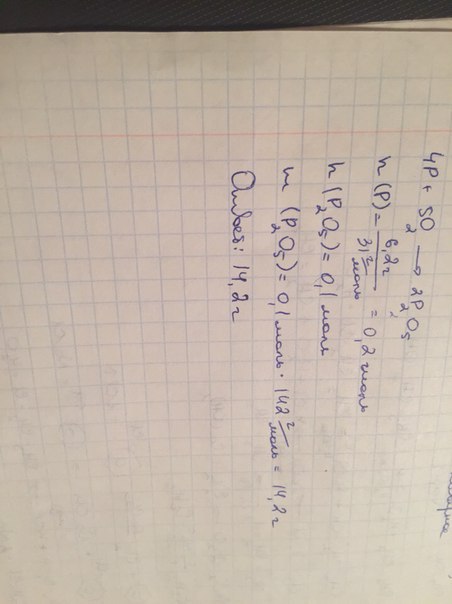 4P + 5O₂ → 2P₂O₅
n (P) = 6,2г / 31 г/моль = 0,2 моль
n (P₂O₅) = 0,1 моль
m (P₂O₅) = 0,1 моль · 142 г/моль = 14,2 г
Ответ: 14,2 г